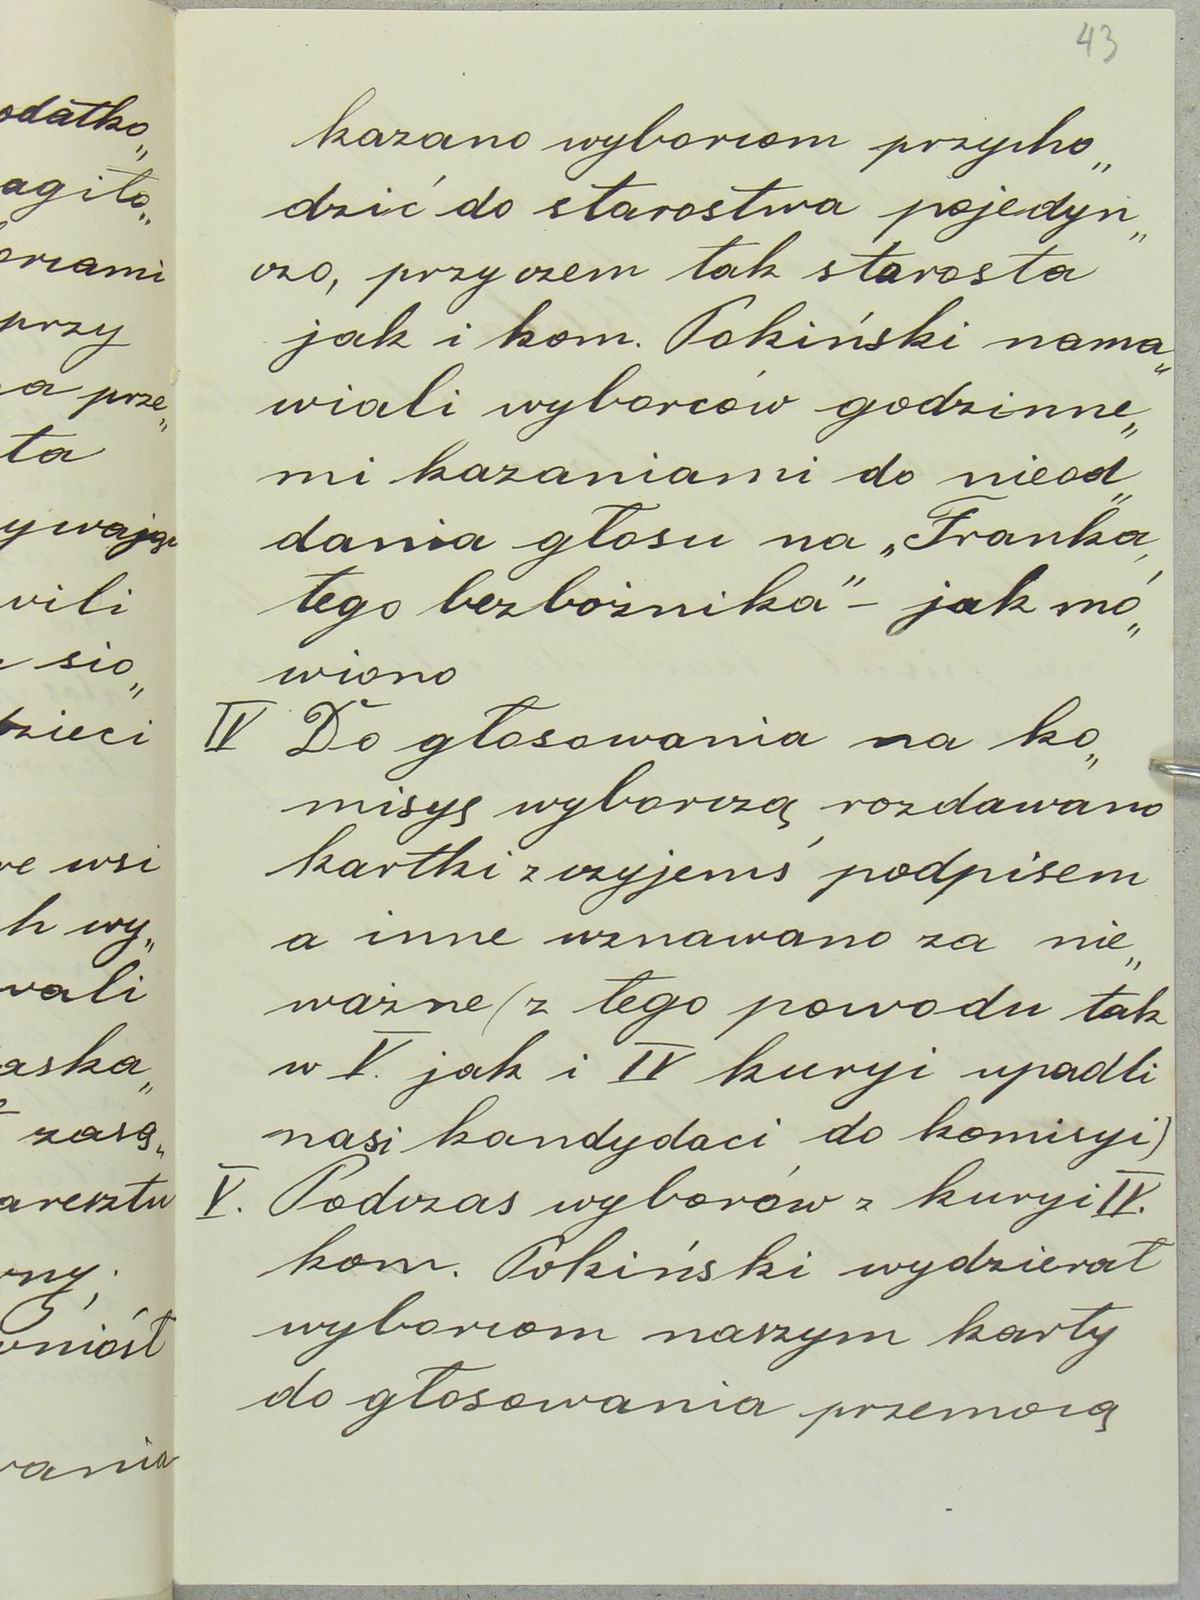 43
odatko„
agito„
orcami
przy
a prze„
ta
ywając
wili
sio„
dzieci
we wsi
h wy„
wali
aska„
zasą„
aresztu
wny;
wniósł
wania
kazano wyborcom przycho„
dzić do starostwa pojedyn„
czo, przyczem tak starosta
jak i kom. Pokiński nama„
wiali wyborców godzinne„
mi kazaniami do nieod„
dania głosu na „Franka,
tego bezbożnika" – jak mó„
wiono
IV Do głosowania na ko„
misyę wyborczą rozdawano
kartki z czyjemś podpisem
a inne uznawano za nie„
ważne (z tego powodu tak
w V. jak i IV kuryi upadli
nasi kandydaci do komisyi)
V. Podczas wyborów z kuryi IV.
kom. Pokiński wydzierał
wyborcom naszym karty
do głosowania przemocą